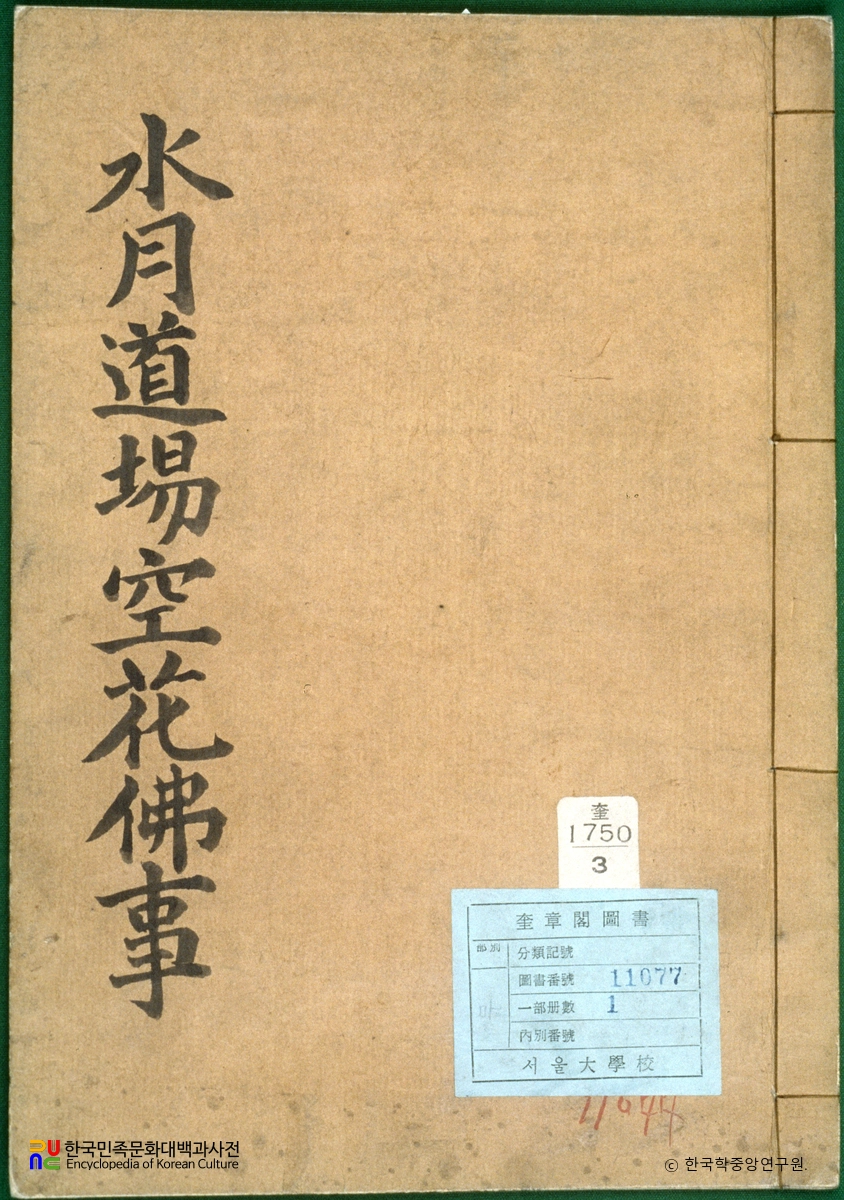 水月道場空花佛事
奎
1750
3
奎章閣圖書
部別
分類記號
圖書番號 11077
一部册數 1
內別番號
서울大學校
한국민족문화대백과사전
Encyclopedia of Korean Culture
© 한국학중앙연구원.